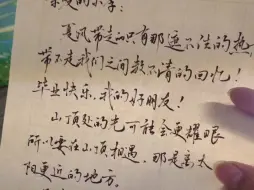 夏风带走的只有那逝不活的热
带不走我们之间数不清的回忆！
毕业快乐，我的好朋友！
山顶处的光可能会更耀眼
所以要在山顶相遇，那是离太
阳更近的地方。